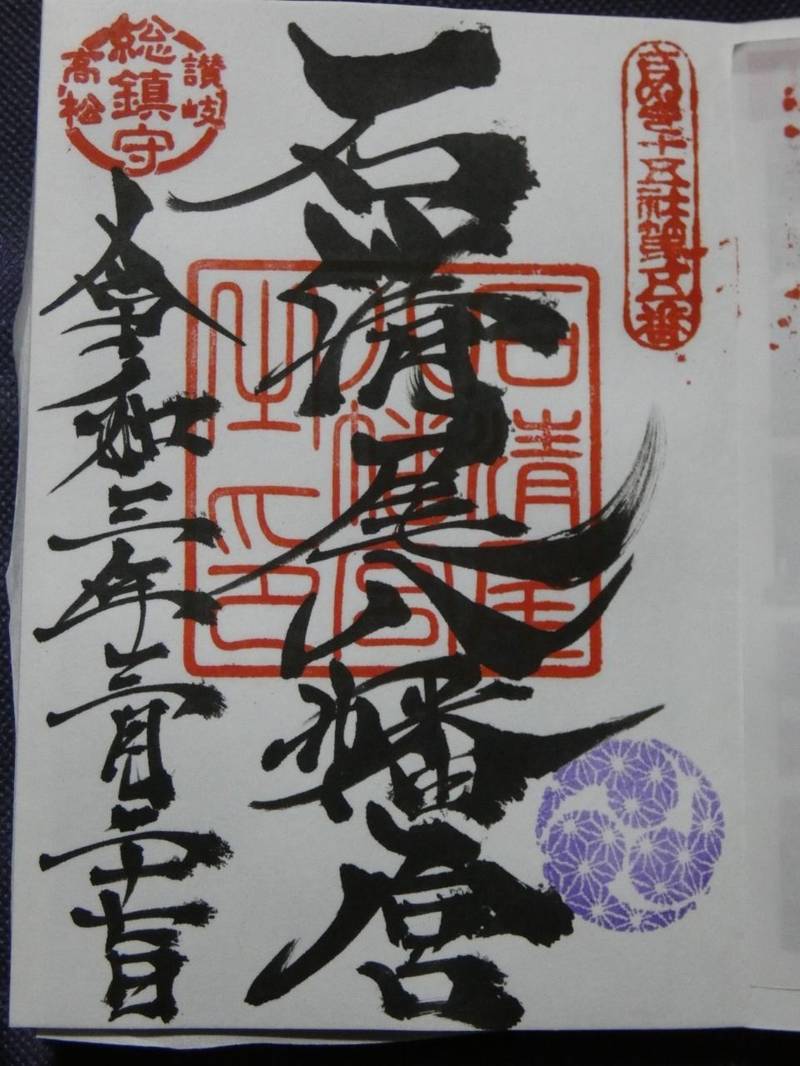 さぬき十五社第五番
石清尾八幡宮
石清尾
八幡宮
之印
讃岐
総鎮守
高松
令和三年三月二十七日